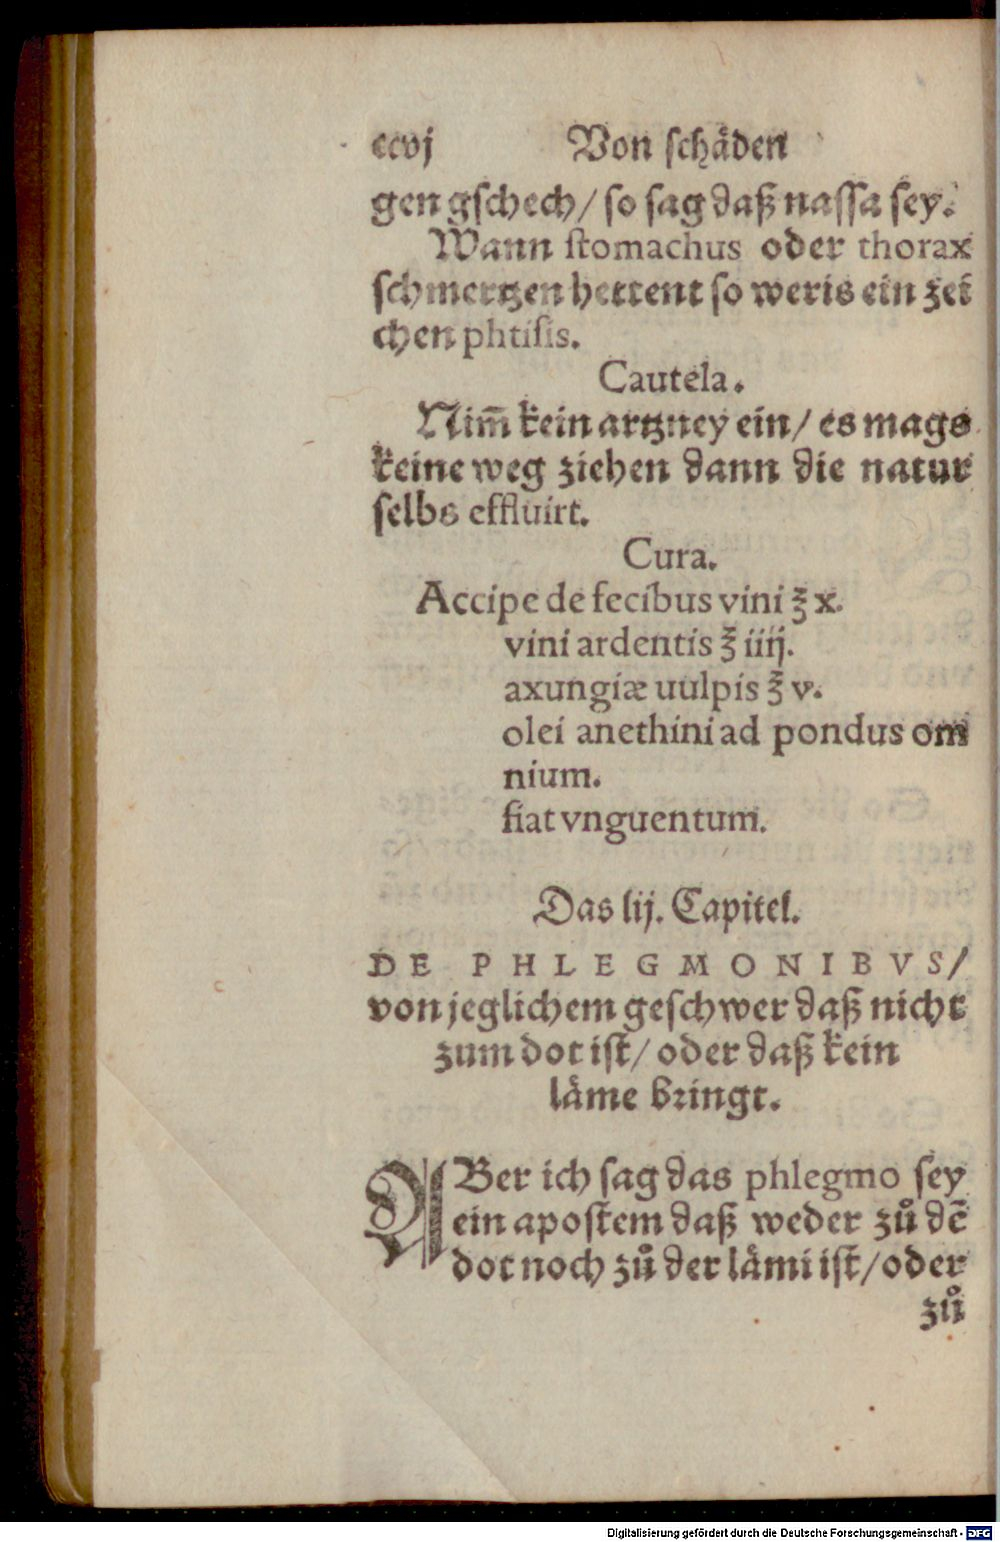 ccvj Von schåden
gen gschech/ so sag daß nassa sey.
Wann stomachus oder thorax
schmertzen hettent so weris ein zei
chen phtisis.
Cautela.
Nim̃ kein artzney ein/ es mags
keine weg ziehen dann die natur
selbs effluirt.
Cura.
Accipe de fecibus vini ℥ x.
vini ardentis ℥ iiij.
axungiæ uulpis ℥ v.
olei anethini ad pondus om
nium.
fiat vnguentum.
Das lij. Capitel.
DE PHLEGMONIBVS/
von jeglichem geschwer daß nicht
zum dot ist/ oder daß kein
låme bringt.
ABer ich sag das phlegmo sey
ein apostem daß weder zů dẽ
dot noch zů der låmi ist/ oder
zů
Digitalisierung gefördert durch die Deutsche Forschungsgemeinschaft - DFG